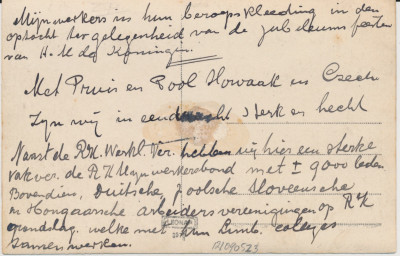 Mijnwerkers in hun beroepskleeding in den
optocht ter gelegenheid van de jubileumsfeesten
van H.M. de Koningin.
Met Pruis en Pool Slowaak en Czech
Zijn wij in eendracht sterk en hecht
Naast de R.K. Werkl. Ver. hebben wij hier een sterke
vakver. de R.K. Mijnwerkersbond met ± 9000 leden
Bovendien, Duitsche, Poolsche Sloveensche
en Hongaarsche arbeidersverenigingen op R.K
grondslag, welke met hun Limb. collegas
samenwerken.
LEONAR
R1090523